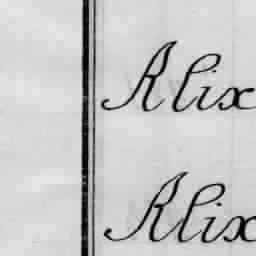 Alix
Alix